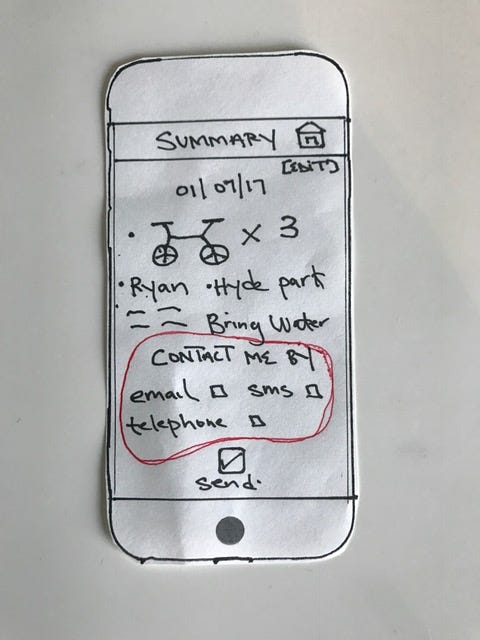 SUMMARY
[EDIT]
01/07/17
x 3
• Ryan • Hyde park
Bring Water
CONTACT ME BY
email sms
telephone
send.